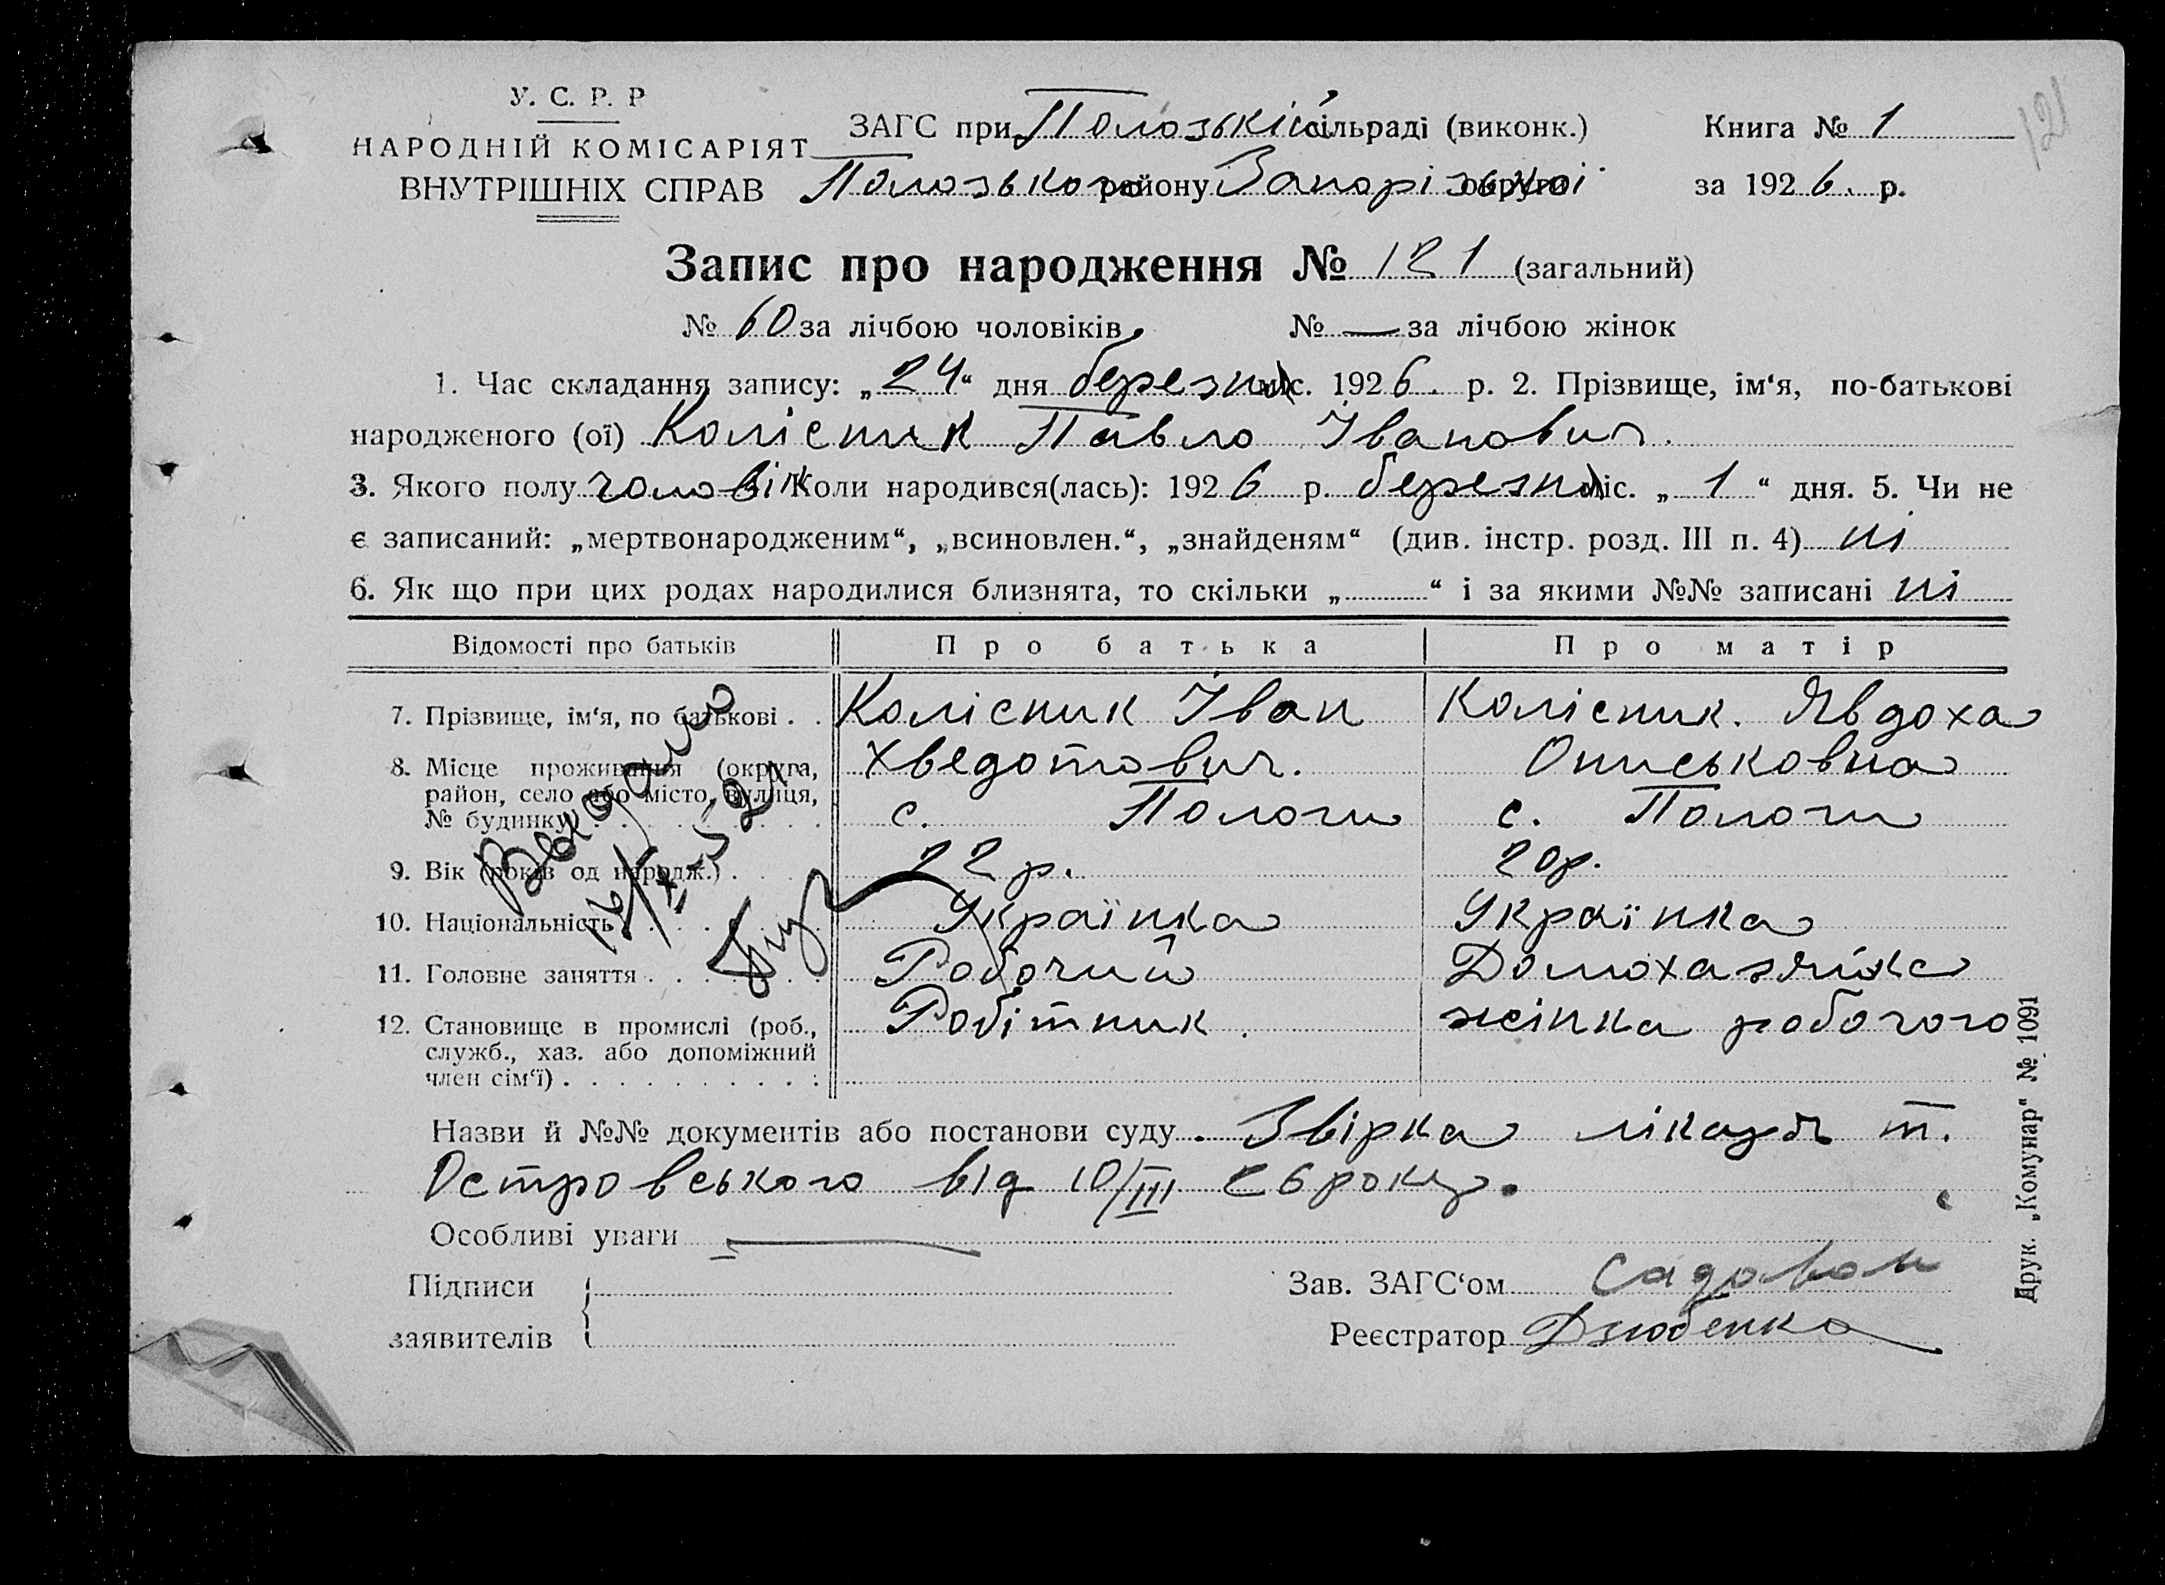 У. С. Р. Р
НАРОДНІЙ КОМІСАРІЯТ
ВНУТРІШНІХ СПРАВ
ЗАГС при Полозькій сільраді (виконк.)
Полозького району Запорізької округи
Книга № 1
за 1926 р.
121
Запис про народження № 121 (загальний)
№ 60 за лічбою чоловіків, № — за лічбою жінок
1. Час складання запису: „24“ дня березня міс. 1926. р. 2. Прізвище, ім‘я, по-батькові
народженого (ої) Колісник Павло Іванович.
3. Якого полу чоловік Коли народився(лась): 1926 р. березня міс. „1“ дня. 5. Чи не
є записаний: „мертвонародженим“, „всиновлен.“, „знайденям“ (див. інстр. розд. III п. 4) ні
6. Як що при цих родах народилися близнята, то скільки „ “ і за якими №№ записані ні
Відомості про батьків Про батька Про матір
7. Прізвище, ім‘я, по батькові . . Колісник Іван Колісник. Явдоха
8. Місце проживання (округа, Хведотович. Ониськовна
район, село або місто, вулиця,
№ будинку) с. Пологи с. Пологи
9. Вік (років од народж.) . 22 р. 20р.
10. Національність Українка Українка
11. Головне заняття Робочий Домохазяйка
12. Становище в промислі (роб., Робітник. жінка робочого
служб., хаз. або допоміжний
член сім‘ї)
Назви й №№ документів або постанови суду. Звірка лікаря т.
Островського від 10/III 26 року.
Особливі уваги —
Підписи
заявителів
Зав. ЗАГС‘ом
Реєстратор Дзюбенко
Друк. „Комунар“ № 1091